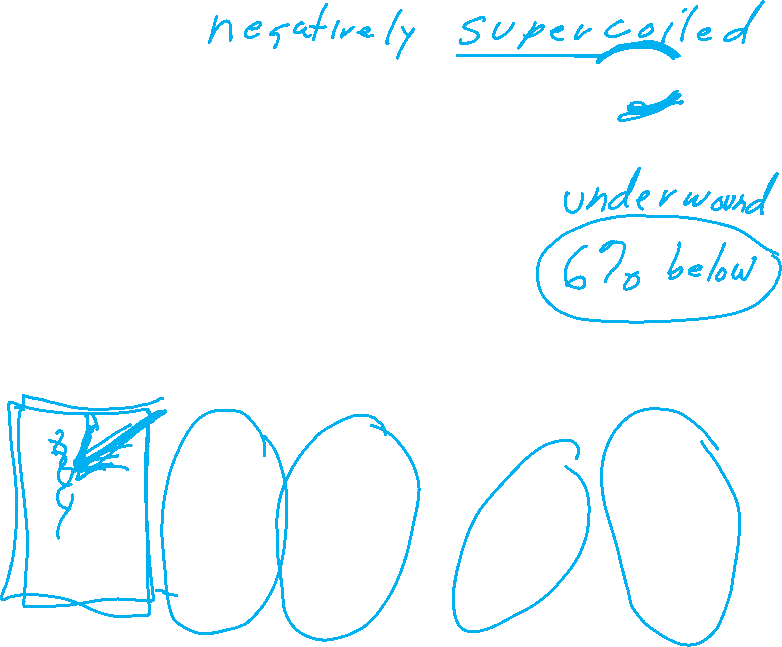 negatively supercoiled
underwound
6% below